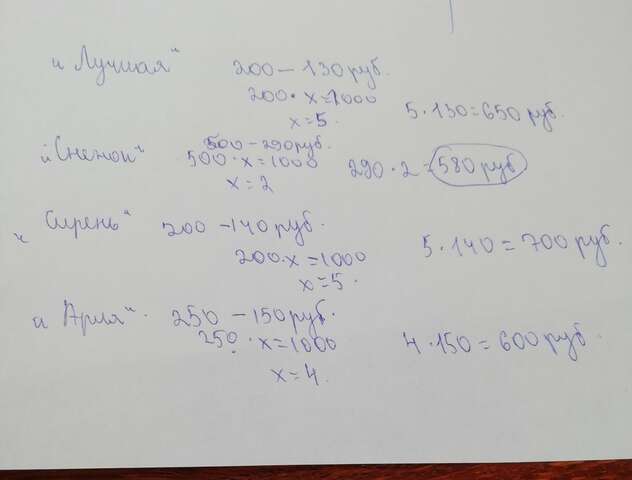 "Лучшая" 200 – 130 руб.
200 · x = 1000
x = 5. 5 · 130 = 650 руб.
"Снежок" 500 – 290 руб.
500 · x = 1000 290 · 2 = 580 руб
x = 2
"Сирень" 200 – 140 руб.
200 · x = 1000 5 · 140 = 700 руб.
x = 5.
"Ария". 250 – 150 руб.
250 · x = 1000 4 · 150 = 600 руб.
x = 4.